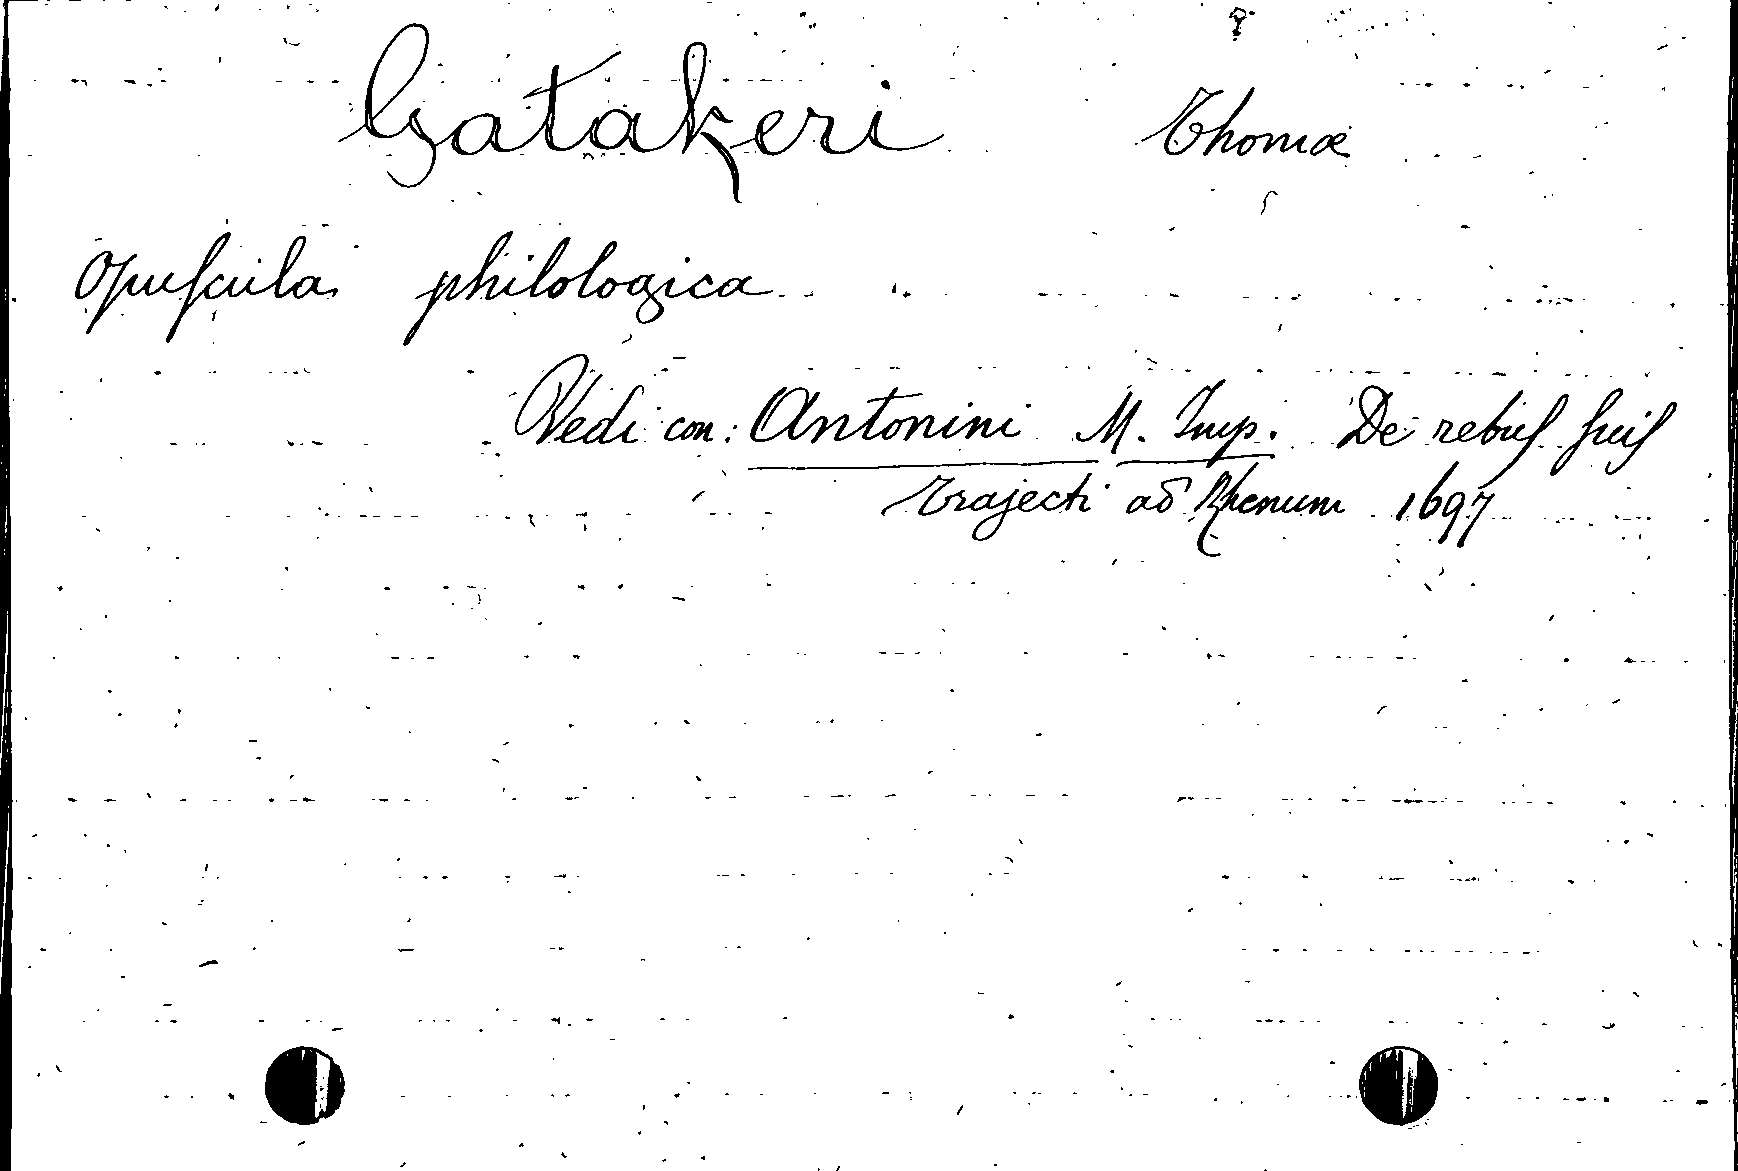 Gatakeri Thomæ
Opuſcula philologica
Vedi con: Antonini M. Imp. De rebuſ ſuiſ
Trajecti ad Rhenum 1697